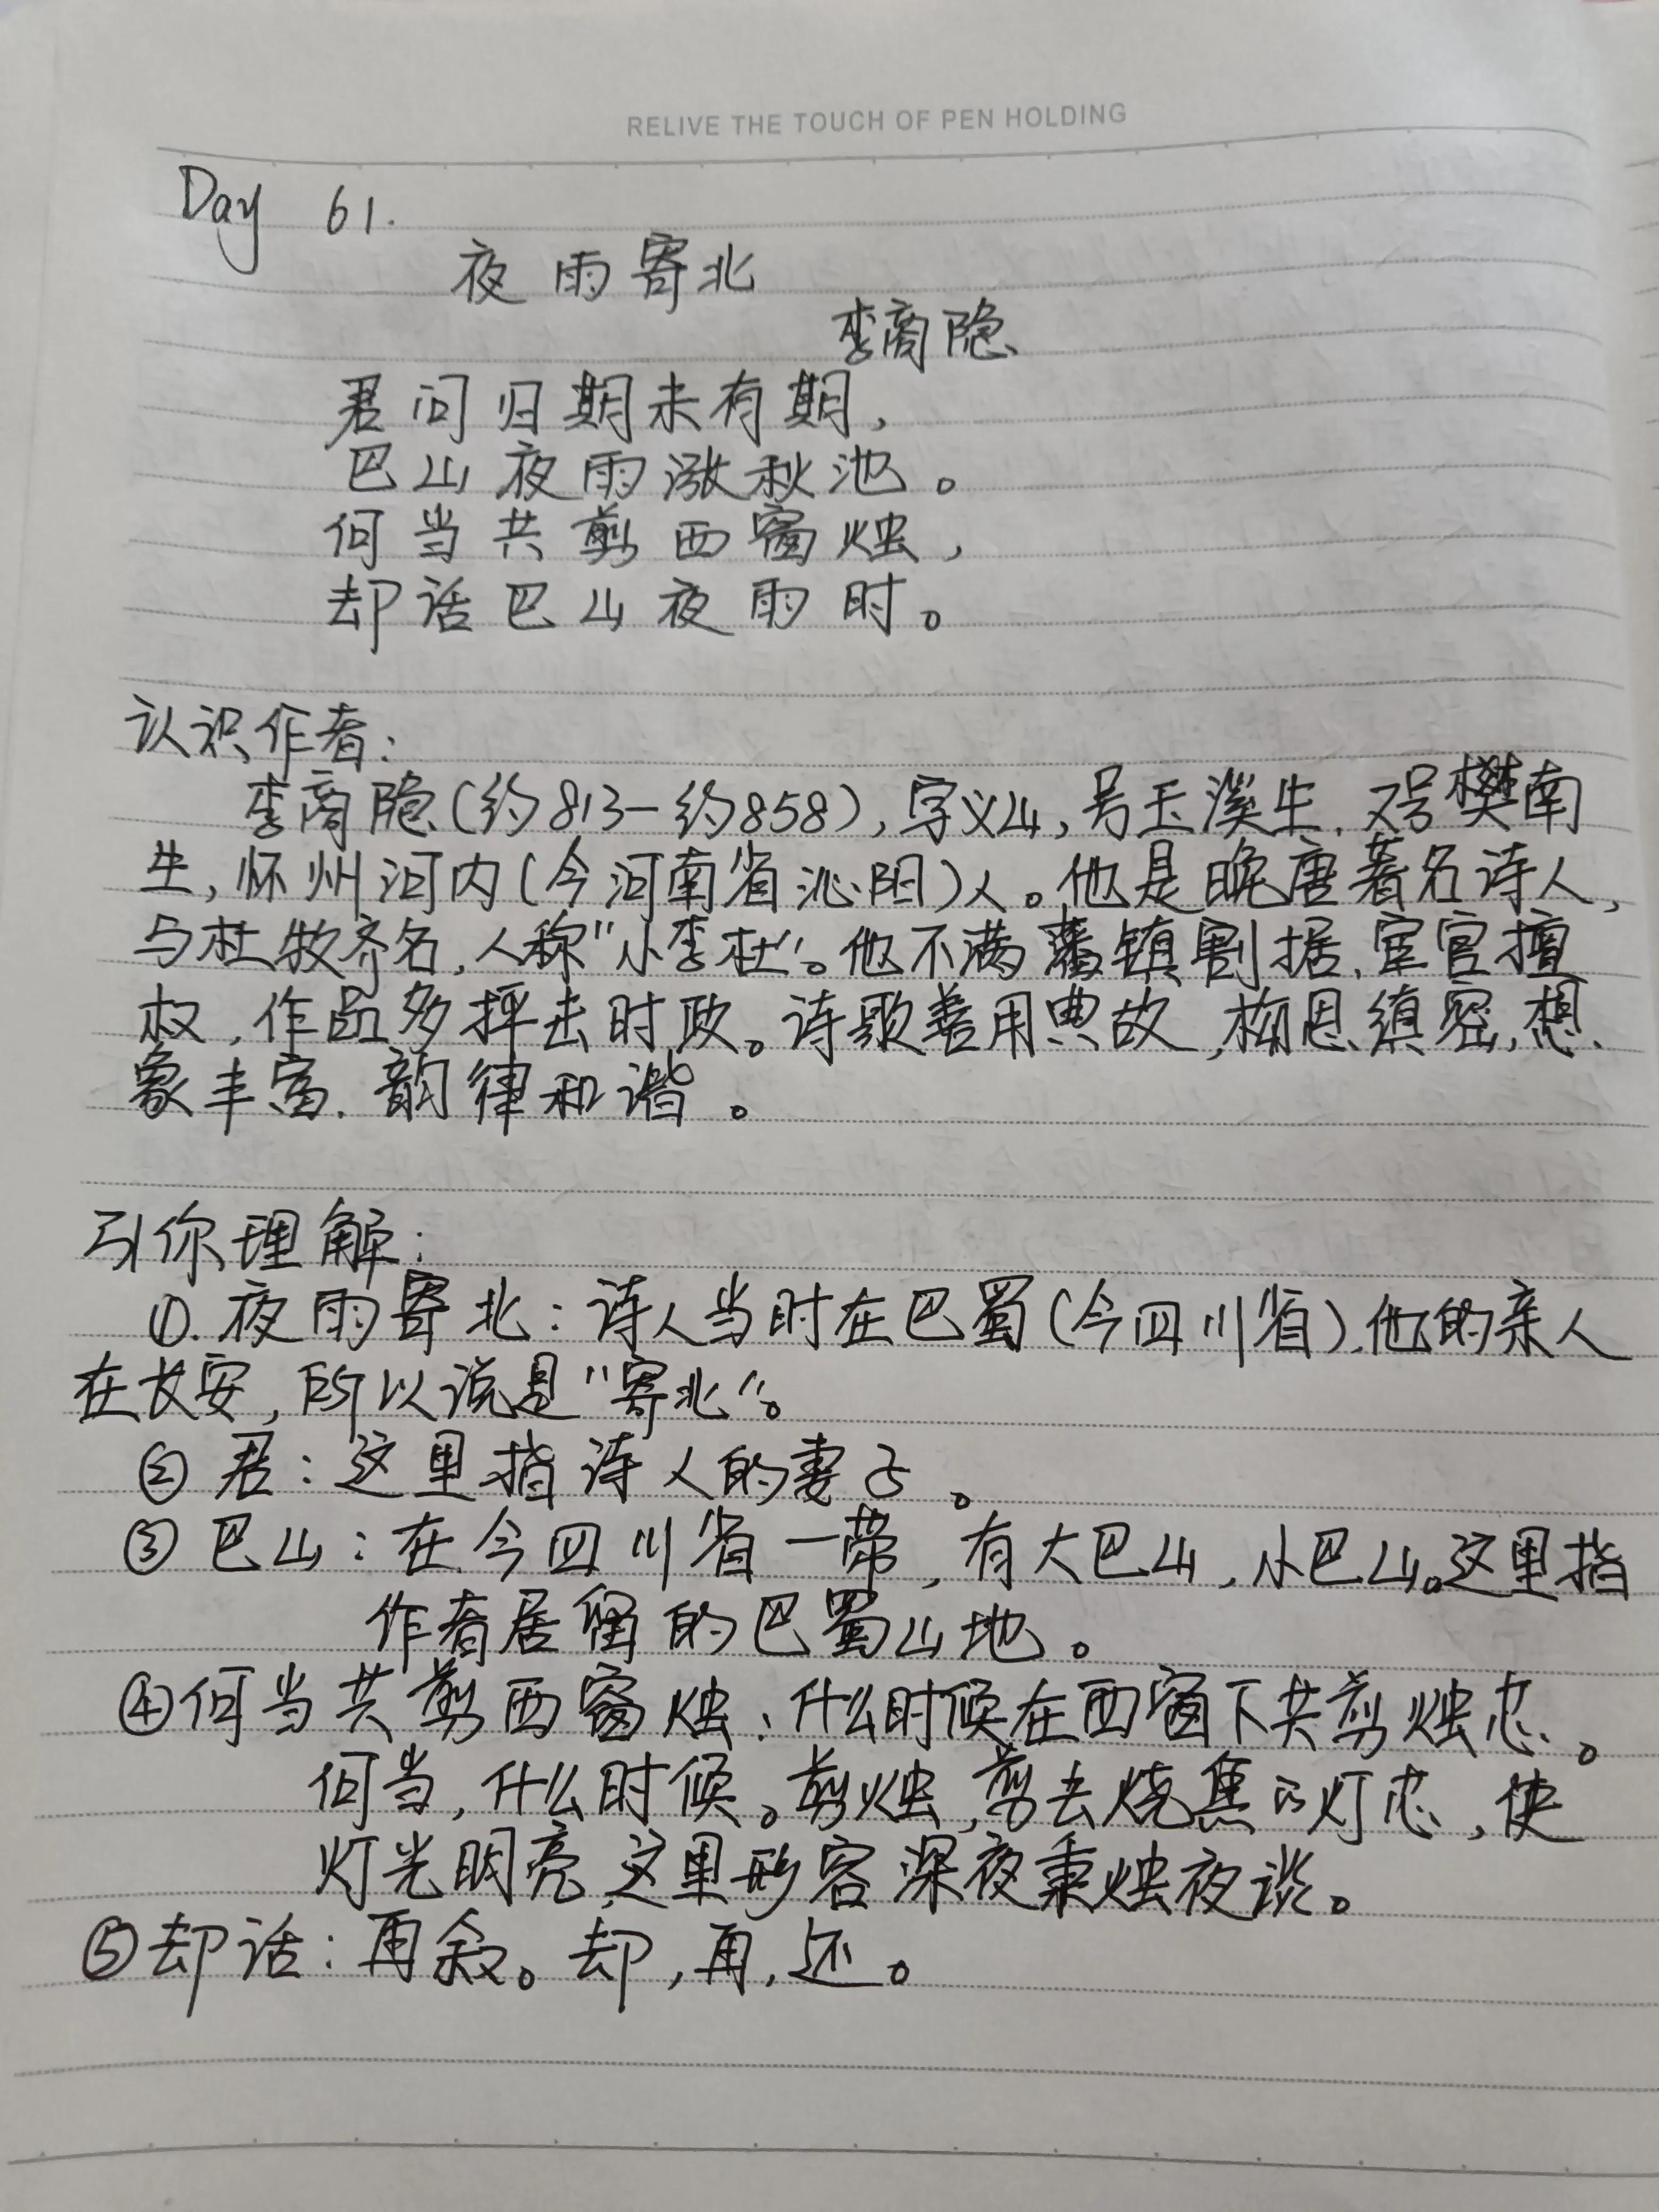 RELIVE THE TOUCH OF PEN HOLDING
Day 61.
夜雨寄北
李商隐
君问归期未有期,
巴山夜雨涨秋池。
何当共剪西窗烛,
却话巴山夜雨时。
认识作者:
李商隐(约813-约858),字义山,号玉溪生,又号樊南
生,怀州河内(今河南省沁阳)人。他是晚唐著名诗人,
与杜牧齐名,人称"小李杜"。他不满藩镇割据、宦官擅
权,作品多抨击时政。诗歌善用典故,构思缜密,想
象丰富,韵律和谐。
引你理解:
①.夜雨寄北:诗人当时在巴蜀(今四川省),他的亲人
在长安,所以说是"寄北"。
②君:这里指诗人的妻子。
③巴山:在今四川省一带,有大巴山,小巴山。这里指
作者居留的巴蜀山地。
④何当共剪西窗烛:什么时候在西窗下共剪烛芯。
何当,什么时候。剪烛,剪去烧焦的灯芯,使
灯光明亮,这里形容深夜秉烛夜谈。
⑤却话:再叙。却,再,还。